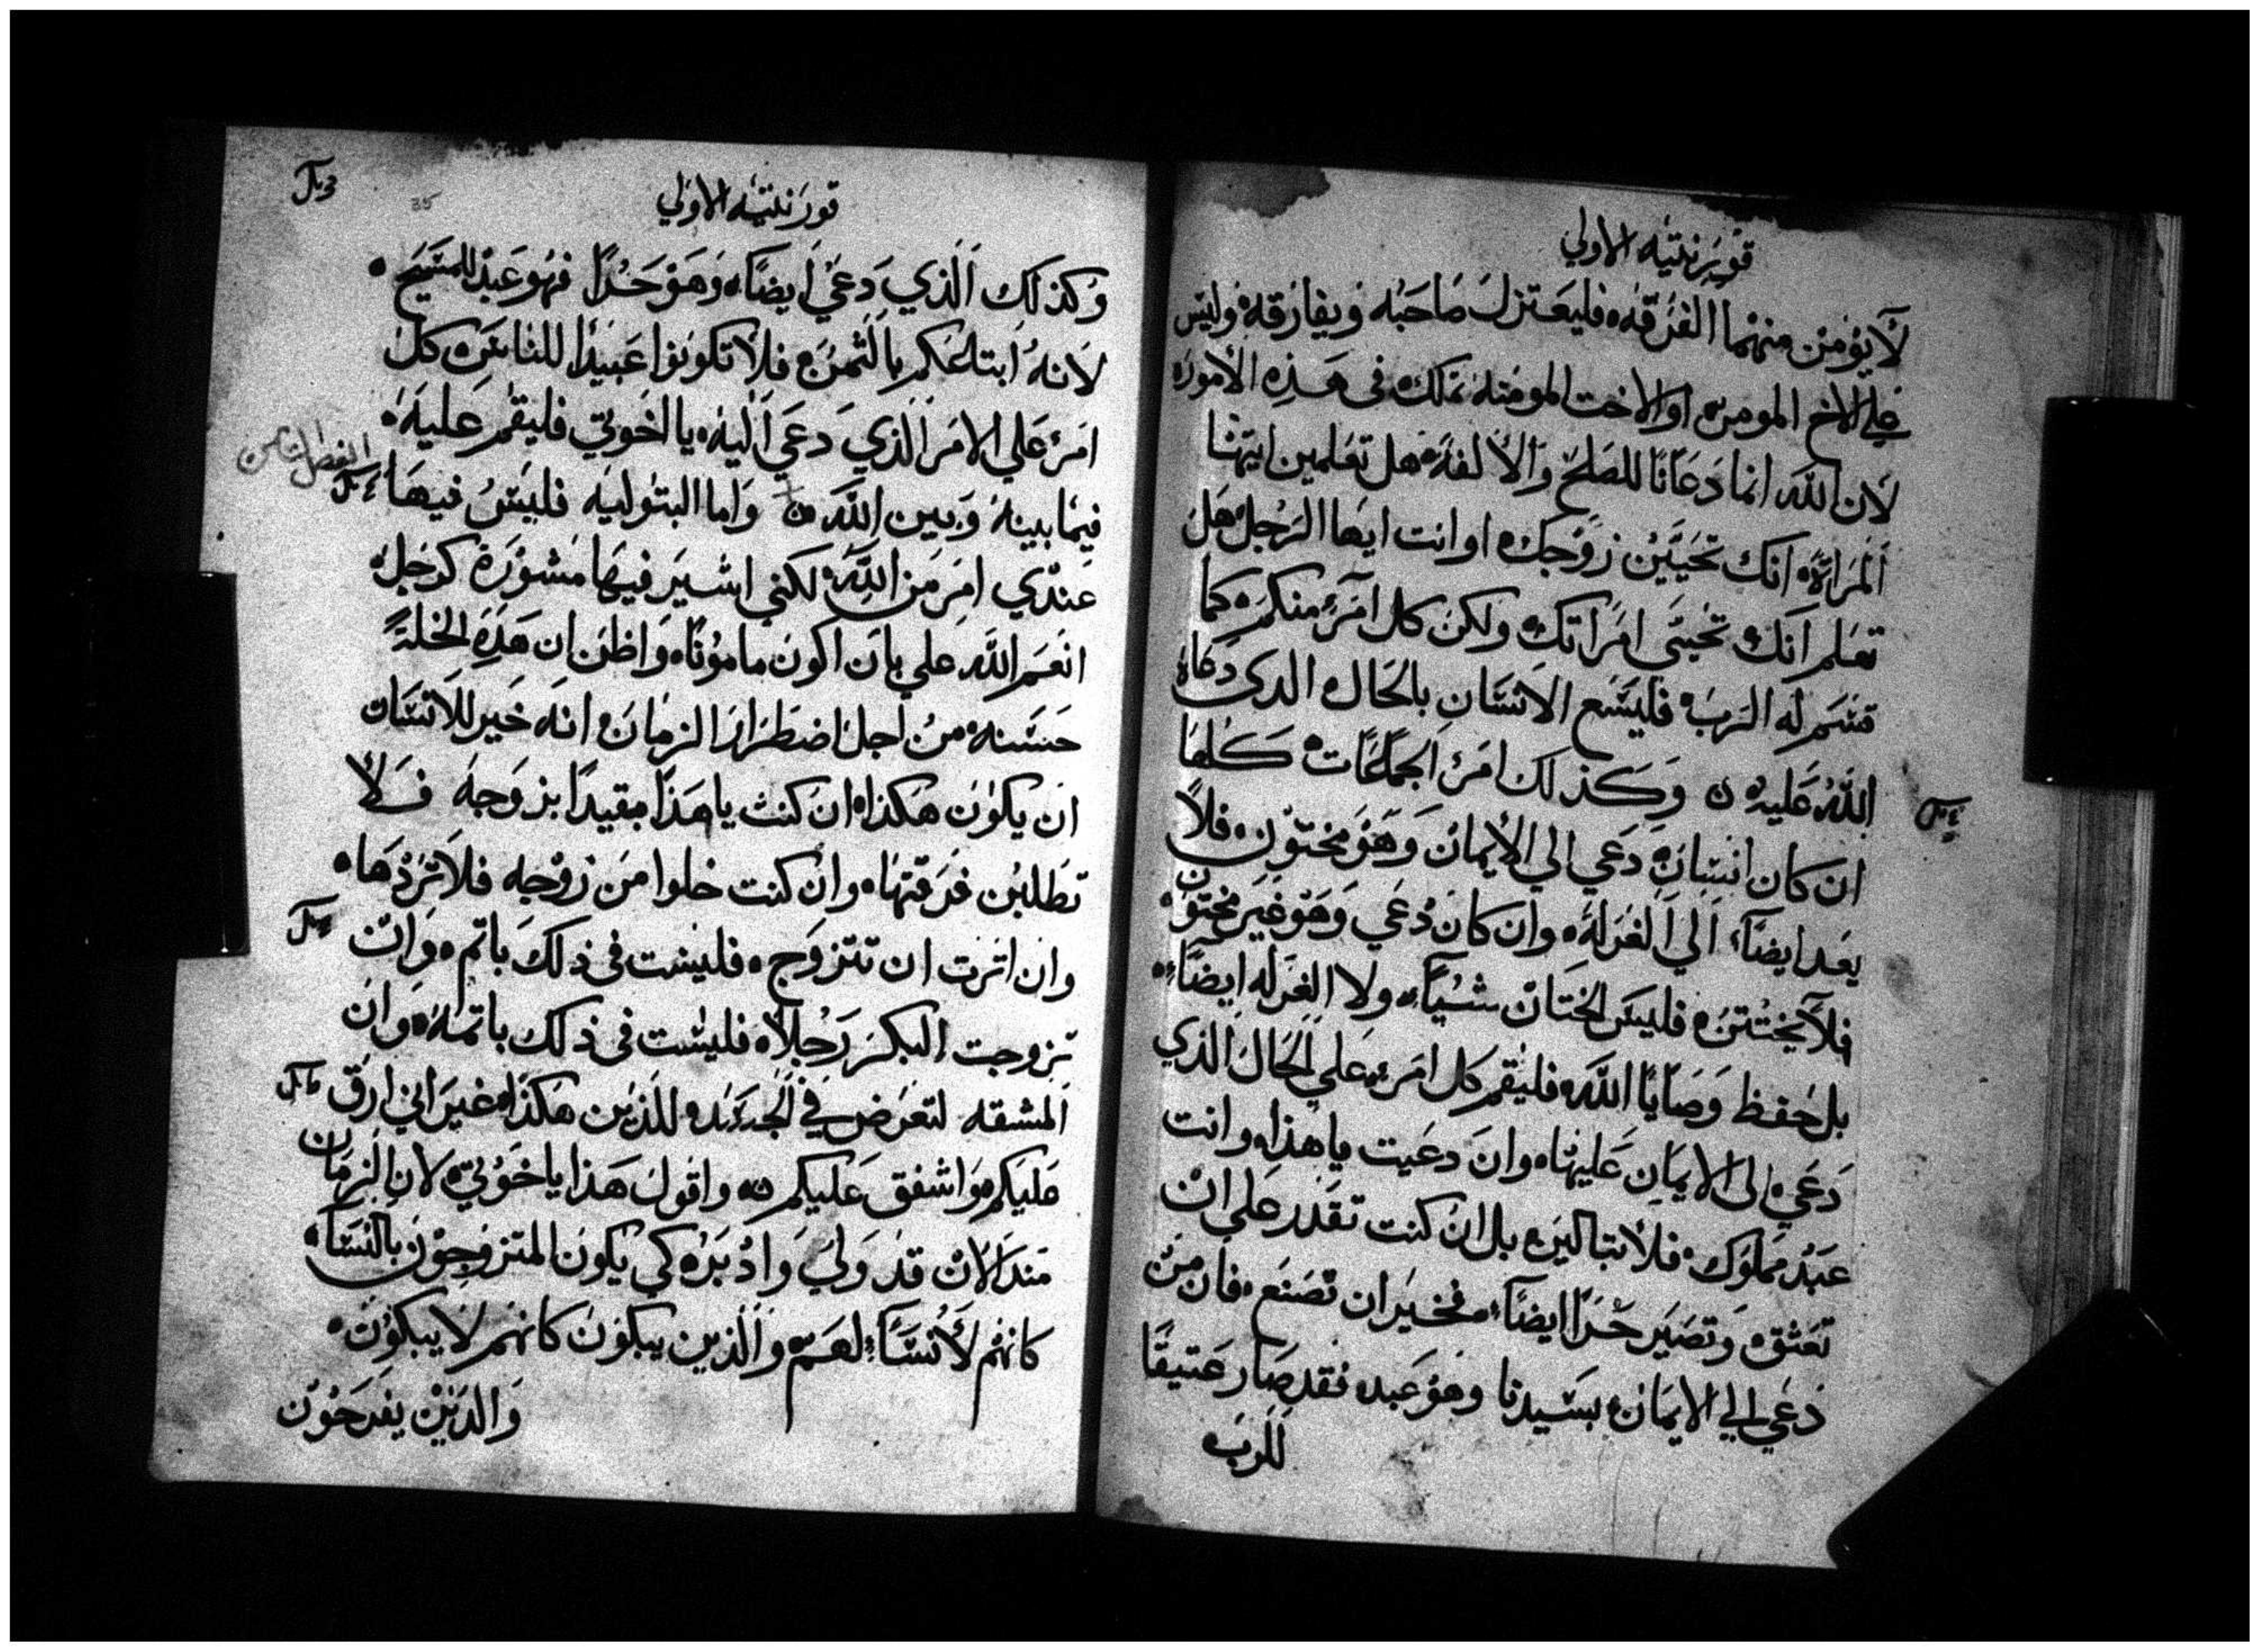 قورنتيه الاولي
لا يومن منهما الفرقه فليعتزل صاحبه ويفارقه وليس
علي الاخ المومن او الاخت المومنه تملك في هذه الاموره
لان الله انما دعانا للصلح والالفه هل تعلمين ايتها
المراة انك تحيين زوجك او انت ايها الرجل هل
تعلم انك تحيي امراتك ولكن كل امرء منكم كما
قسم له الرب فليسع الانسان بالحال الدي دعاه
الله عليه وكذلك امر الجماعات كلها
ان كان انسان دعي الي الايمان وهو مختون فلا
يعد ايضًا الي الغرلة وان كان دعي وهو غير مختون
فلا يختتن فليس الختان شيًا ولا الغرله ايضًا
بل حفظ وصايا الله فليقم كل امرء علي الحال الذي
دعي الى الايمان عليها وان دعيت ياهذا وانت
عبد مملوك فلا تبالين بل ان كنت تقدر علي ان
تعتق وتصير حرا ايضًا فخير ان تصنع فان من
دعي الي الايمان بسيدنا وهو عبد فقد صار عتيقًا
للرب
قورنتيه الاولي
35
وكذلك الذي دعي ايضًا وهو حرًا فهو عبد للمسيح
لانه ابتاعكم بالثمن فلا تكونوا عبيدًا للناس كل
امرء علي الامر الذي دعي اليه يا اخوتي فليقم عليه
فيما بينه وبين الله واما البتوليه فليس فيها
الفصل الثامن
عندي امر من الله لكني اشير فيها مشورة كرجل
انعم الله علي بان اكون مامونًا واظن ان هذه الخلة
حسنه من اجل اضطرار الزمان انه خير للانسان
ان يكون هكذا ان كنت ياهذا مقيدًا بزوجه فلا
تطلبن فرقتها وان كنت خلوا من زوجه فلا تردها
وان اثرت ان تتزوج فليست في ذلك باثم وان
تزوجت البكر رجلا فليست في ذلك باثمه وان
المشقه لتعرض في الجسد للذين هكذا غير اني ارق
عليكم واشفق عليكم واقول هذا يا خوتي لان الزمان
منذ الان قد ولي وادبر كي يكون المتزوجون بالنساء
كانهم لا نساء لهم والذين يبكون كانهم لا يبكون
والدين يفرحون